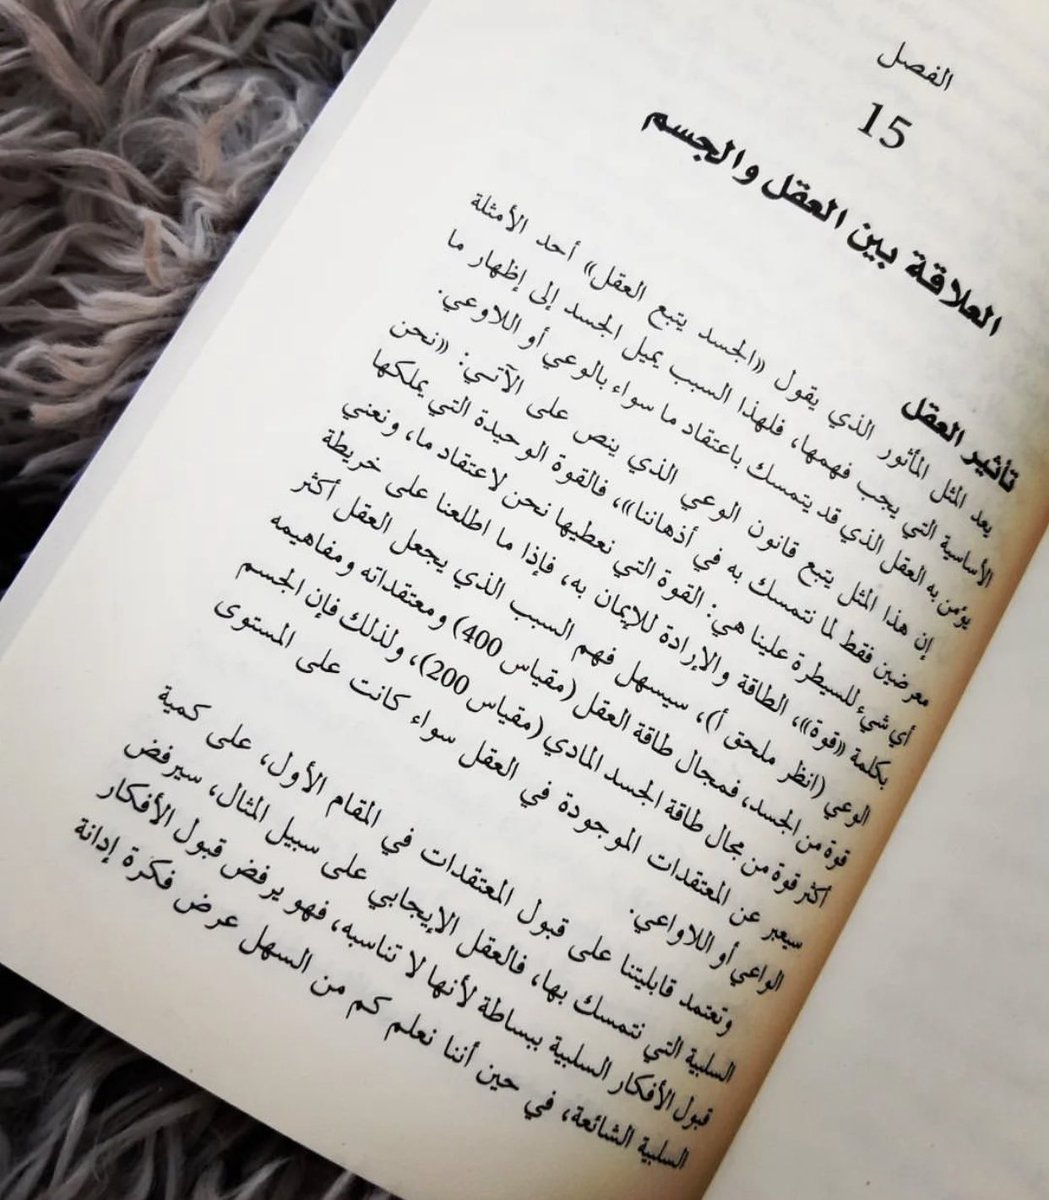 الفصل
15
العلاقة بين العقل والجسم
تأثير العقل
يعد المثل المأثور الذي يقول «الجسد يتبع العقل» أحد الأمثلة
الأساسية التي يجب فهمها، فلهذا السبب يميل الجسد إلى إظهار ما
يؤمن به العقل الذي قد يتمسك باعتقاد ما سواء بالوعي أو اللاوعي.
إن هذا المثل يتبع قانون الوعي الذي ينص على الآتي: «نحن
معرضين فقط لما نتمسك به في أذهاننا»، فالقوة الوحيدة التي يملكها
أي شيء للسيطرة علينا هي: القوة التي نعطيها نحن لاعتقاد ما، ونعني
بكلمة «قوة»، الطاقة والإرادة للإيمان به، فإذا ما اطلعنا على خريطة
الوعي (انظر ملحق أ)، سيسهل فهم السبب الذي يجعل العقل أكثر
قوة من الجسد، فمجال طاقة العقل (مقياس 400) ومعتقداته ومفاهيمه
أكثر قوة من مجال طاقة الجسد المادي (مقياس 200)، ولذلك فإن الجسم
سيعبر عن المعتقدات الموجودة في العقل سواء كانت على المستوى
الواعي أو اللاواعي.
وتعتمد قابليتنا على قبول المعتقدات في المقام الأول، على كمية
السلبية التي نتمسك بها، فالعقل الإيجابي على سبيل المثال، سيرفض
قبول الأفكار السلبية ببساطة لأنها لا تناسبه، فهو يرفض قبول الأفكار
السلبية الشائعة، في حين أننا نعلم كم من السهل عرض فكرة إدانة